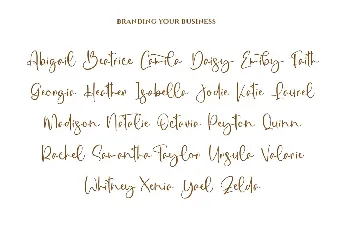 BRANDING YOUR BUSINESS
Abigail Beatrice Camila Daisy Emily Faith
Georgia Heather Isabella Jodie Katie Laurel
Madison Natalie Octavia Peyton Quinn
Rachel Samantha Taylor Ursula Valarie
Whitney Xenia Yael Zelda